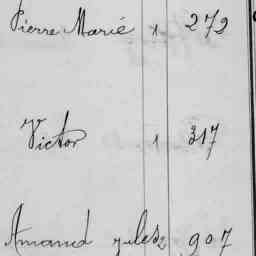 Pierre Marie 1 272
Victor 1 317
Amand Jules 2 907